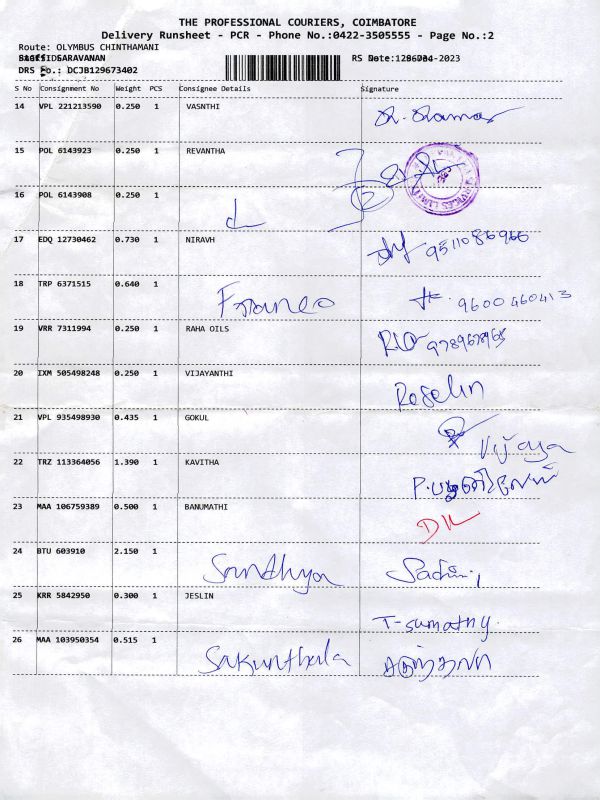 THE PROFESSIONAL COURIERS, COIMBATORE
Delivery Runsheet - PCR - Phone No.:0422-3505555 - Page No.:2
Route: OLYMBUS CHINTHAMANI
SARAVANAN
DRS No.: DCJB129673402
S No Consignment No Weight PCS Consignee Details Signature
14 VPL 221213590 0.250 1 VASNTHI
15 POL 6143923 0.250 1 REVANTHA
16 POL 6143908 0.250 1
17 EDQ 12730462 0.730 1 NIRAVH 9511086966
18 TRP 6371515 0.640 1 Franco 9600460413
19 VRR 7311994 0.250 1 RAHA OILS
20 IXM 505498248 0.250 1 VIJAYANTHI Roselin
21 VPL 935498930 0.435 1 GOKUL Vijaya
22 TRZ 113364056 1.390 1 KAVITHA
23 MAA 106759389 0.500 1 BANUMATHI
24 BTU 603910 2.150 1 Sandhya
25 KRR 5842950 0.300 1 JESLIN T-Sumathy.
26 MAA 103950354 0.515 1 Sakunthala